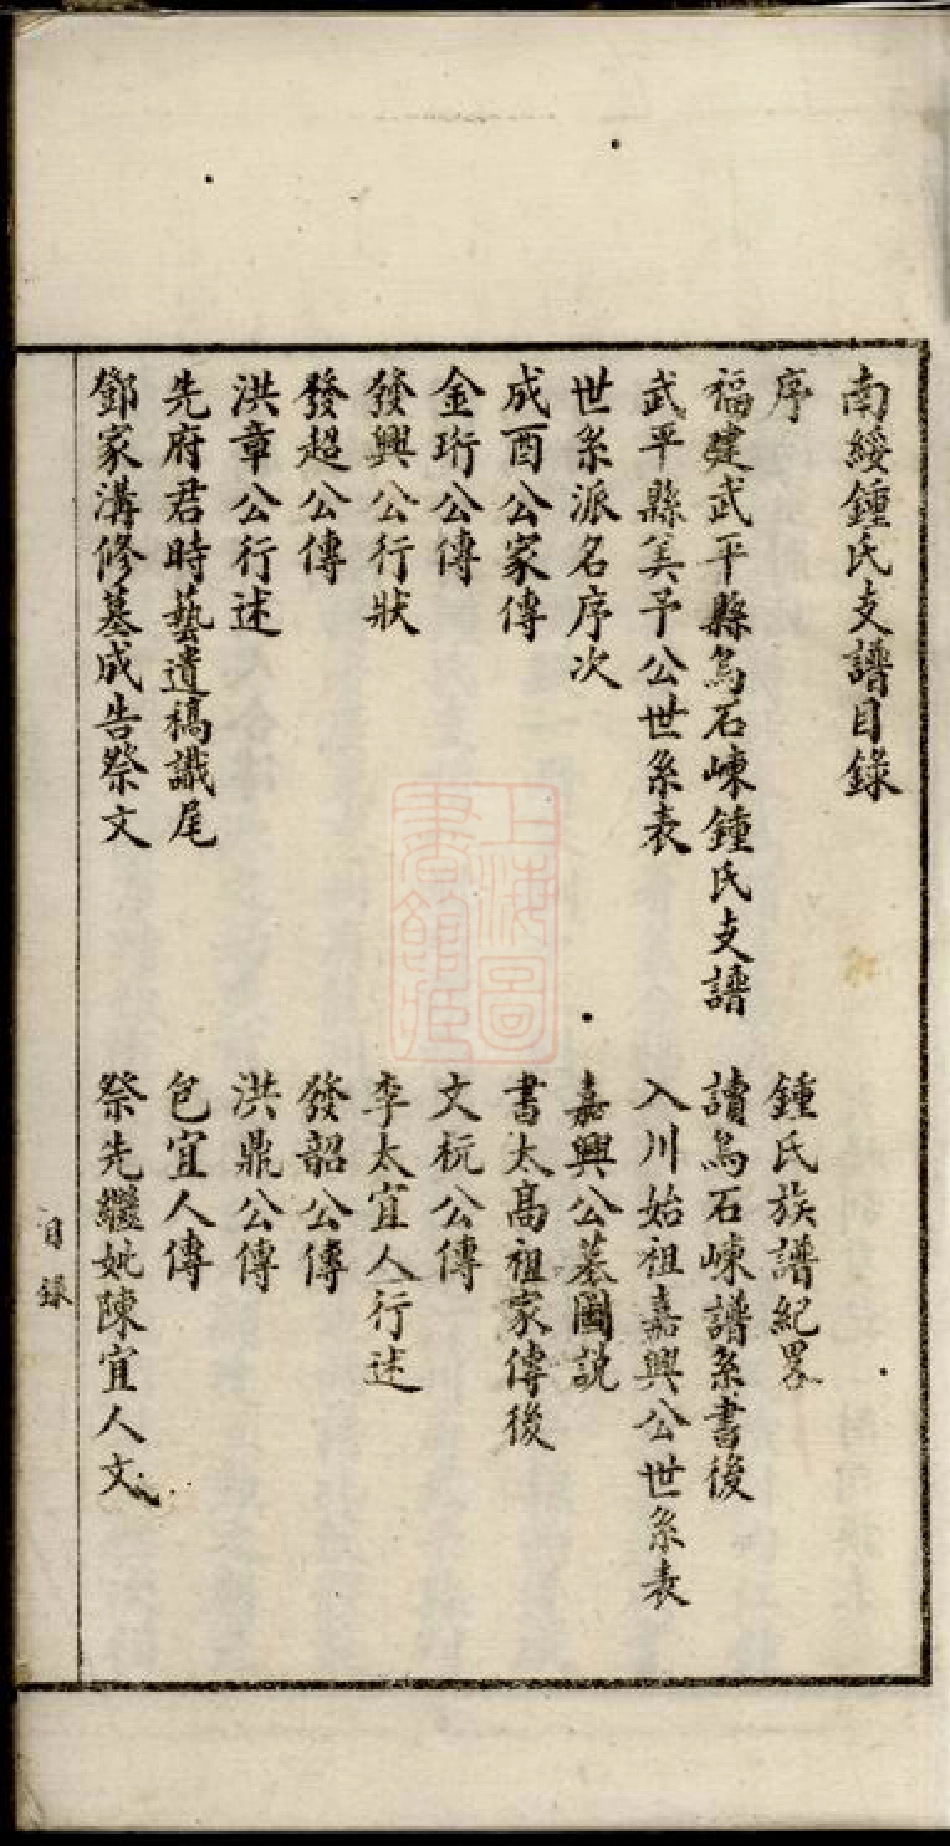 南綏鍾氏支譜目錄
序　鍾氏族譜紀畧
福建武平縣烏石崠鍾氏支譜　讀烏石崠譜系書後
武平縣美予公世系表　入川始祖嘉興公世系表
世系派名序次　嘉興公墓圖說
成酉公家傳　書太高祖家傳後
金珩公傳　文杬公傳
發興公行狀　李太宜人行述
發超公傳　發韶公傳
洪章公行述　洪鼎公傳
先府君時藝遺稿識尾　包宜人傳
鄧家溝修墓成告祭文　祭先繼妣陳宜人文
目錄
上海圖書館藏